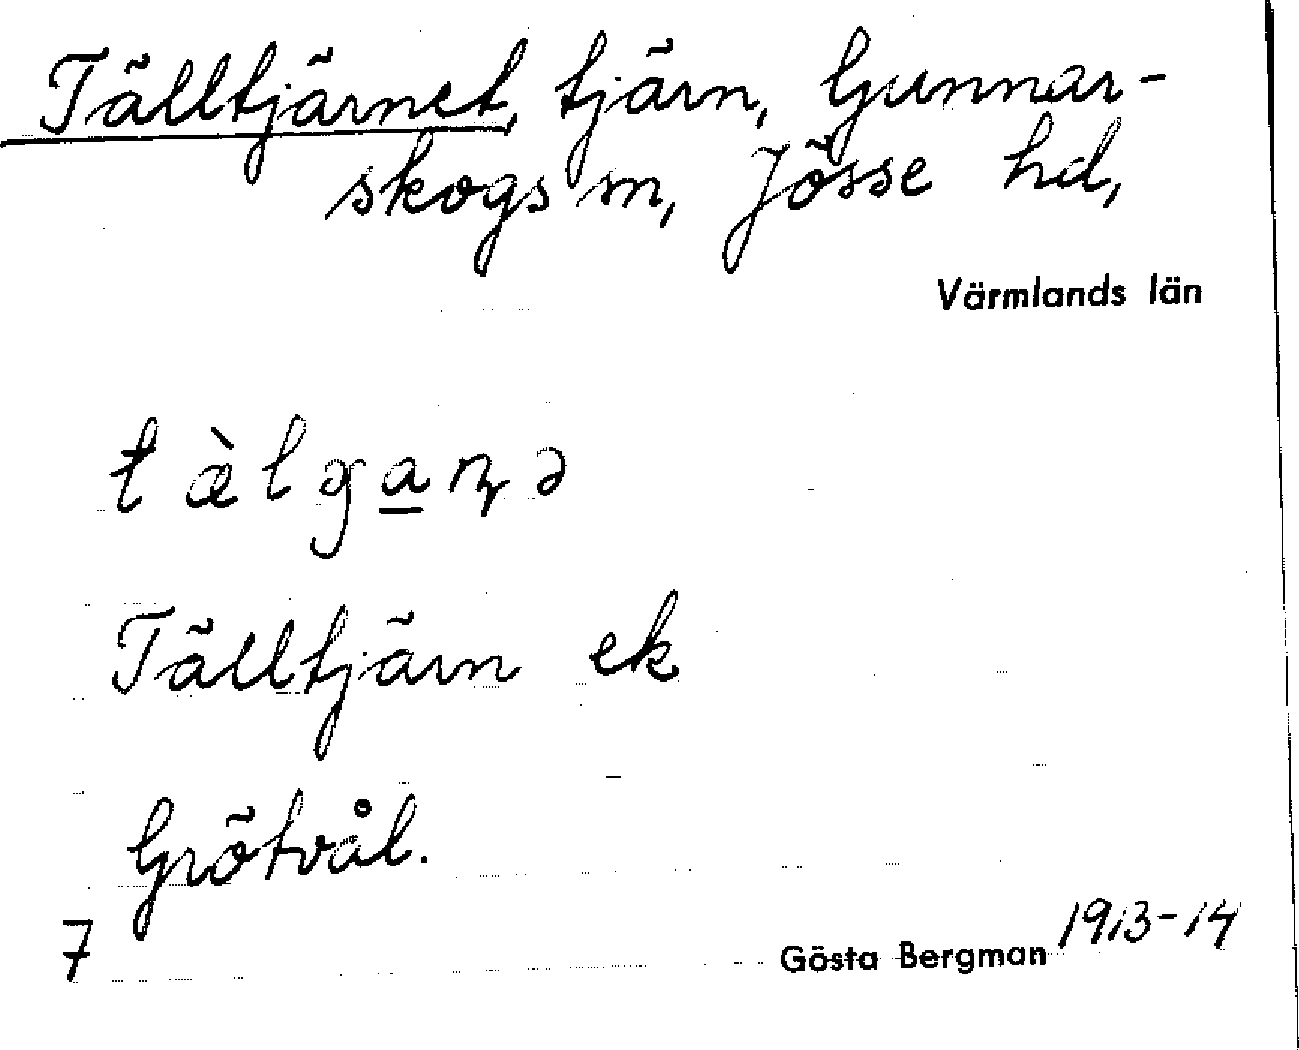 Tälltjärnet, tjärn, Gunnar-
skogs sn, Jösse hd,
Värmlands län
tæ̀lga̠ɳə
Tälltjärn ek
Grötvål.
7
Gösta Bergman 1913-14